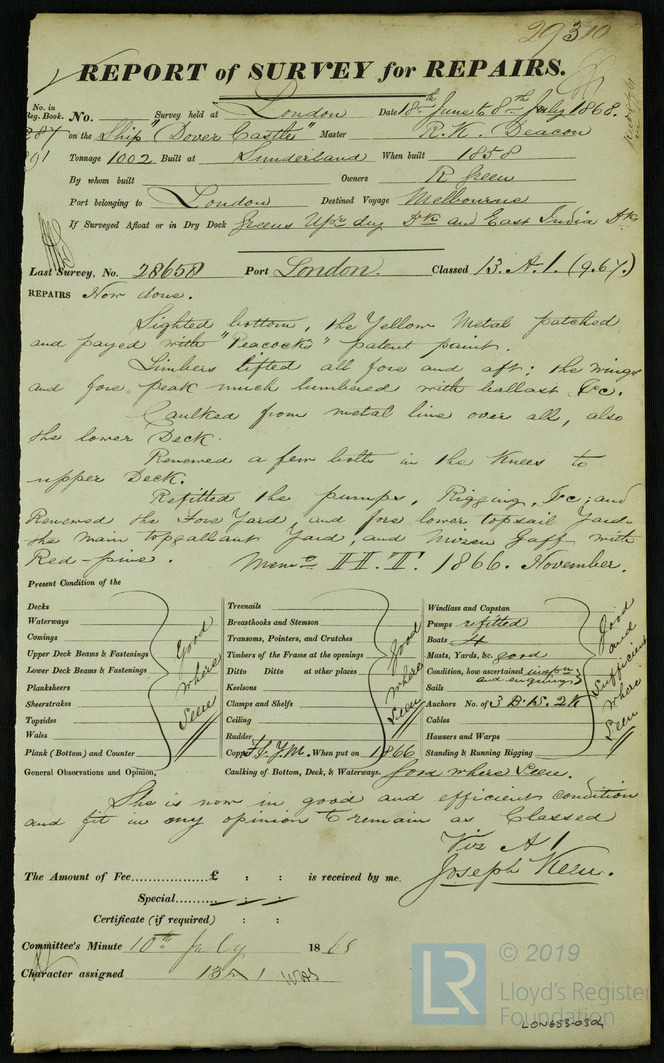 29310
REPORT of SURVEY for REPAIRS.
No. in Reg. Book. No. Survey held at London Date 18th June to 8th July 1868.
287 on the Ship "Dover Castle" Master R. H. Deacon
Tonnage 1002 Built at Sunderland When built 1858
By whom built Owners R Green
Port belonging to London Destined Voyage Melbourne
If Surveyed Afloat or in Dry Dock Greens Upr dry Dk and East India Dk
Last Survey, No. 28658 Port London. Classed 13. A. 1. (9.67.)
REPAIRS Now done.
Sighted bottom, the Yellow Metal patched
and payed with "Peacocks" patent paint.
Limbers lifted all fore and aft; the wings
and fore peak much lumbered with ballast &c.
Caulked from metal line over all, also
the lower Deck.
Renewed a few bolts in the Knees to
upper Deck.
Refitted the pumps, Rigging, &c; and
Renewed the Fore Yard, and fore lower topsail Yard
the main topgallant Yard, and Mizen Gaff with
Red-pine. Memo II.II.I. 1866. November.
Present Condition of the
Decks
Waterways
Comings
Upper Deck Beams & Fastenings
Lower Deck Beams & Fastenings
Planksheers
Sheerstrakes
Topsides
Wales
Plank (Bottom) and Counter
Good where Seen
Treenails
Breasthooks and Stemson
Transoms, Pointers, and Crutches
Timbers of the Frame at the openings
Ditto Ditto at other places
Keelsons
Clamps and Shelfs
Ceiling
Rudder
Copper F. Y.M. When put on 1866
Good where Seen
Windlass and Capstan
Pumps refitted
Boats 4
Masts, Yards, &c. good
Condition, how ascertained inspn and enquiring
Sails
Anchors No. of 3 B. 1 S. 2 K
Cables
Hawsers and Warps
Standing & Running Rigging
Good and Sufficient where Seen
General Observations and Opinion, Caulking of Bottom, Deck, & Waterways. Good where Seen.
She is now in good and efficient condition
and fit in my opinion to remain as Classed
Viz A 1
Joseph Keen.
The Amount of Fee £ : : is received by me,
Special
Certificate (if required) : :
Committee's Minute 10th July 1868
Character assigned 13 A 1
© 2019
LR
Lloyd's Register
Foundation
LON653-0304